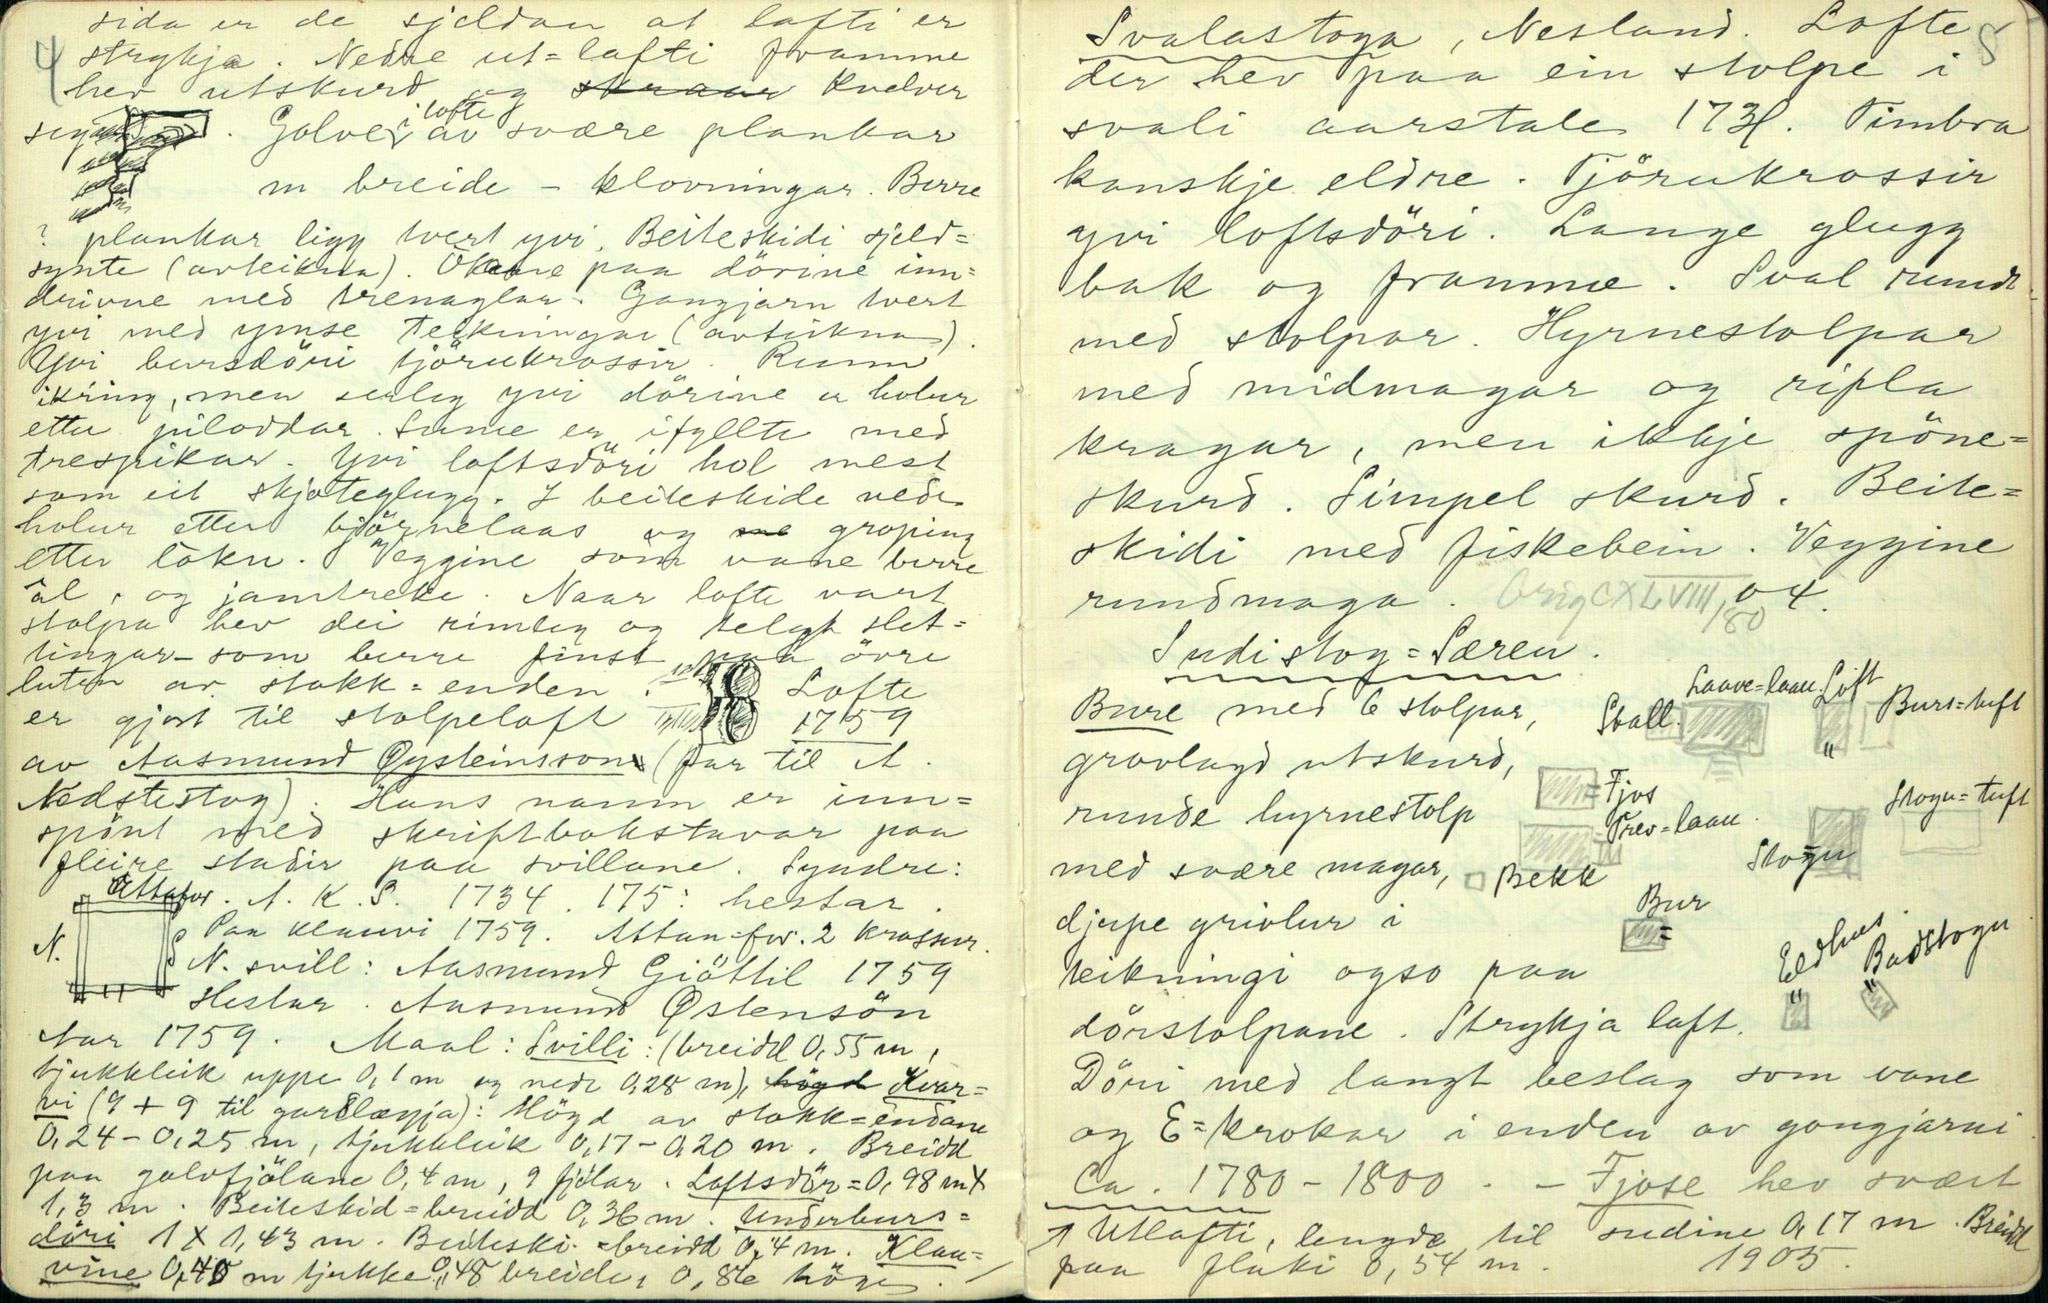 4
sida er de sjeldan at lafti er
strykja. Nedre ut=lafti framme
hev utskurd og skraar kvelver
seg . Golve i lofte av svære plankar
m breide – klovningar. Berre
? plankar ligg tvert yvi. Beiteskidi sjeld=
synte (avteikna). Okane paa dörine inn=
drivne med trenaglar. Gangjarn tvert
yvi med ymse teikningar (avteikna).
Yvi bursdöri tjörukrossir. Runn
ikring, men serleg yvi dörine er holur
etter piloddar. Sume er ifyllte med
trespikar. Yvi loftsdöri hol mest
som eit skjoteglugg. I beiteskide nede
holur etter björnelaas og groping
etter lökn. Veggine som vane berre
ål, og jamtreke. Naar lofte vart
stolpa hev dei rimeleg og telgt slet=
tingar som berre finst paa övre
luten av stokk=enden. Lofte
er gjort til stolpeloft 1759
av Aasmund Øysteinsson (far til A.
Nedstestog). Hans namn er inn=
spönt med skriftbokstavar paa
fleire stadir paa svillane. Syndre:
Attafor. A. K. S. 1734. 175: hestar.
N. S Paa klauvi 1759. Attan=for. 2 krossur.
N. svill: Aasmund Giöttil 1759
Hestar. Aasmund Østensön
Aar 1759. Maal: Svilli: (breidd 0,55 m,
tjukkleik uppe 0,1 m og nede 0,28 m), högd Kvar=
vi (9 + 9 til gardlægja): Högd av stokk=endane
0,24 – 0,25 m, tjukkleik 0,17 – 0,20 m. Breidd
paa golvfjölane 0,4 m, 9 fjölar. Loftsdör = 0,98 m x
1,3 m. Beiteskid=breidd 0,36 m. Underburs=
döri 1 x 1,43 m. Beiteski=breidd 0,4 m. Klau=
vine 0,45 m tjukke, 0,48 breide, 0,86 höge.
5
Svalastoga, Nesland. Lofte
der hev paa ein stolpe i
svali aarstale 173 . Timbra
kanskje eldre. Tjörukrossir
yvi loftsdöri. Lange glugg
bak og framme. Sval rundt
med stolpar. Hyrnestolpar
med midmagar og ripla
kragar, men ikkje spöne=
skurd. Simpel skurd. Beite=
skidi med fiskebein. Veggine
rundmaga. Orig CXLVIII/80 04.
Sudistog=Særen.
Bure med 6 stolpar,
gravlagd utskurd,
runde hyrnestolp
med svære magar,
djupe grivlur i
teikningi ogso paa
dörstolpane. Strykja laft.
Döri med langt beslag som vane
og E=krokar i enden av gongjarni.
Ca. 1780 – 1800. – Fjose hev svært
↗ Utlafti, lengde til sudine 0,17 m. Breidd
paa flaki 0,54 m. 1905.
Stall.
Laave=laan.
Loft
Burs=tuft
Fjos
Trev=laan.
Stogu=tuft
Stogu
Bekk
Bur
Eldhus.
Badstogu